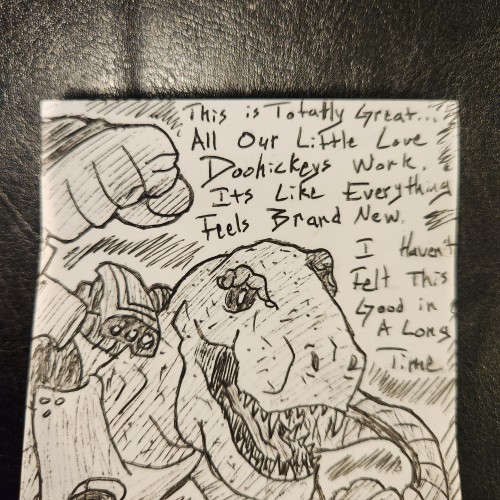 This is Totally Great...
All Our Little Love
Doohickeys Work.
Its Like Everything
Feels Brand New.
I Haven't
Felt This
Good in
A Long
Time